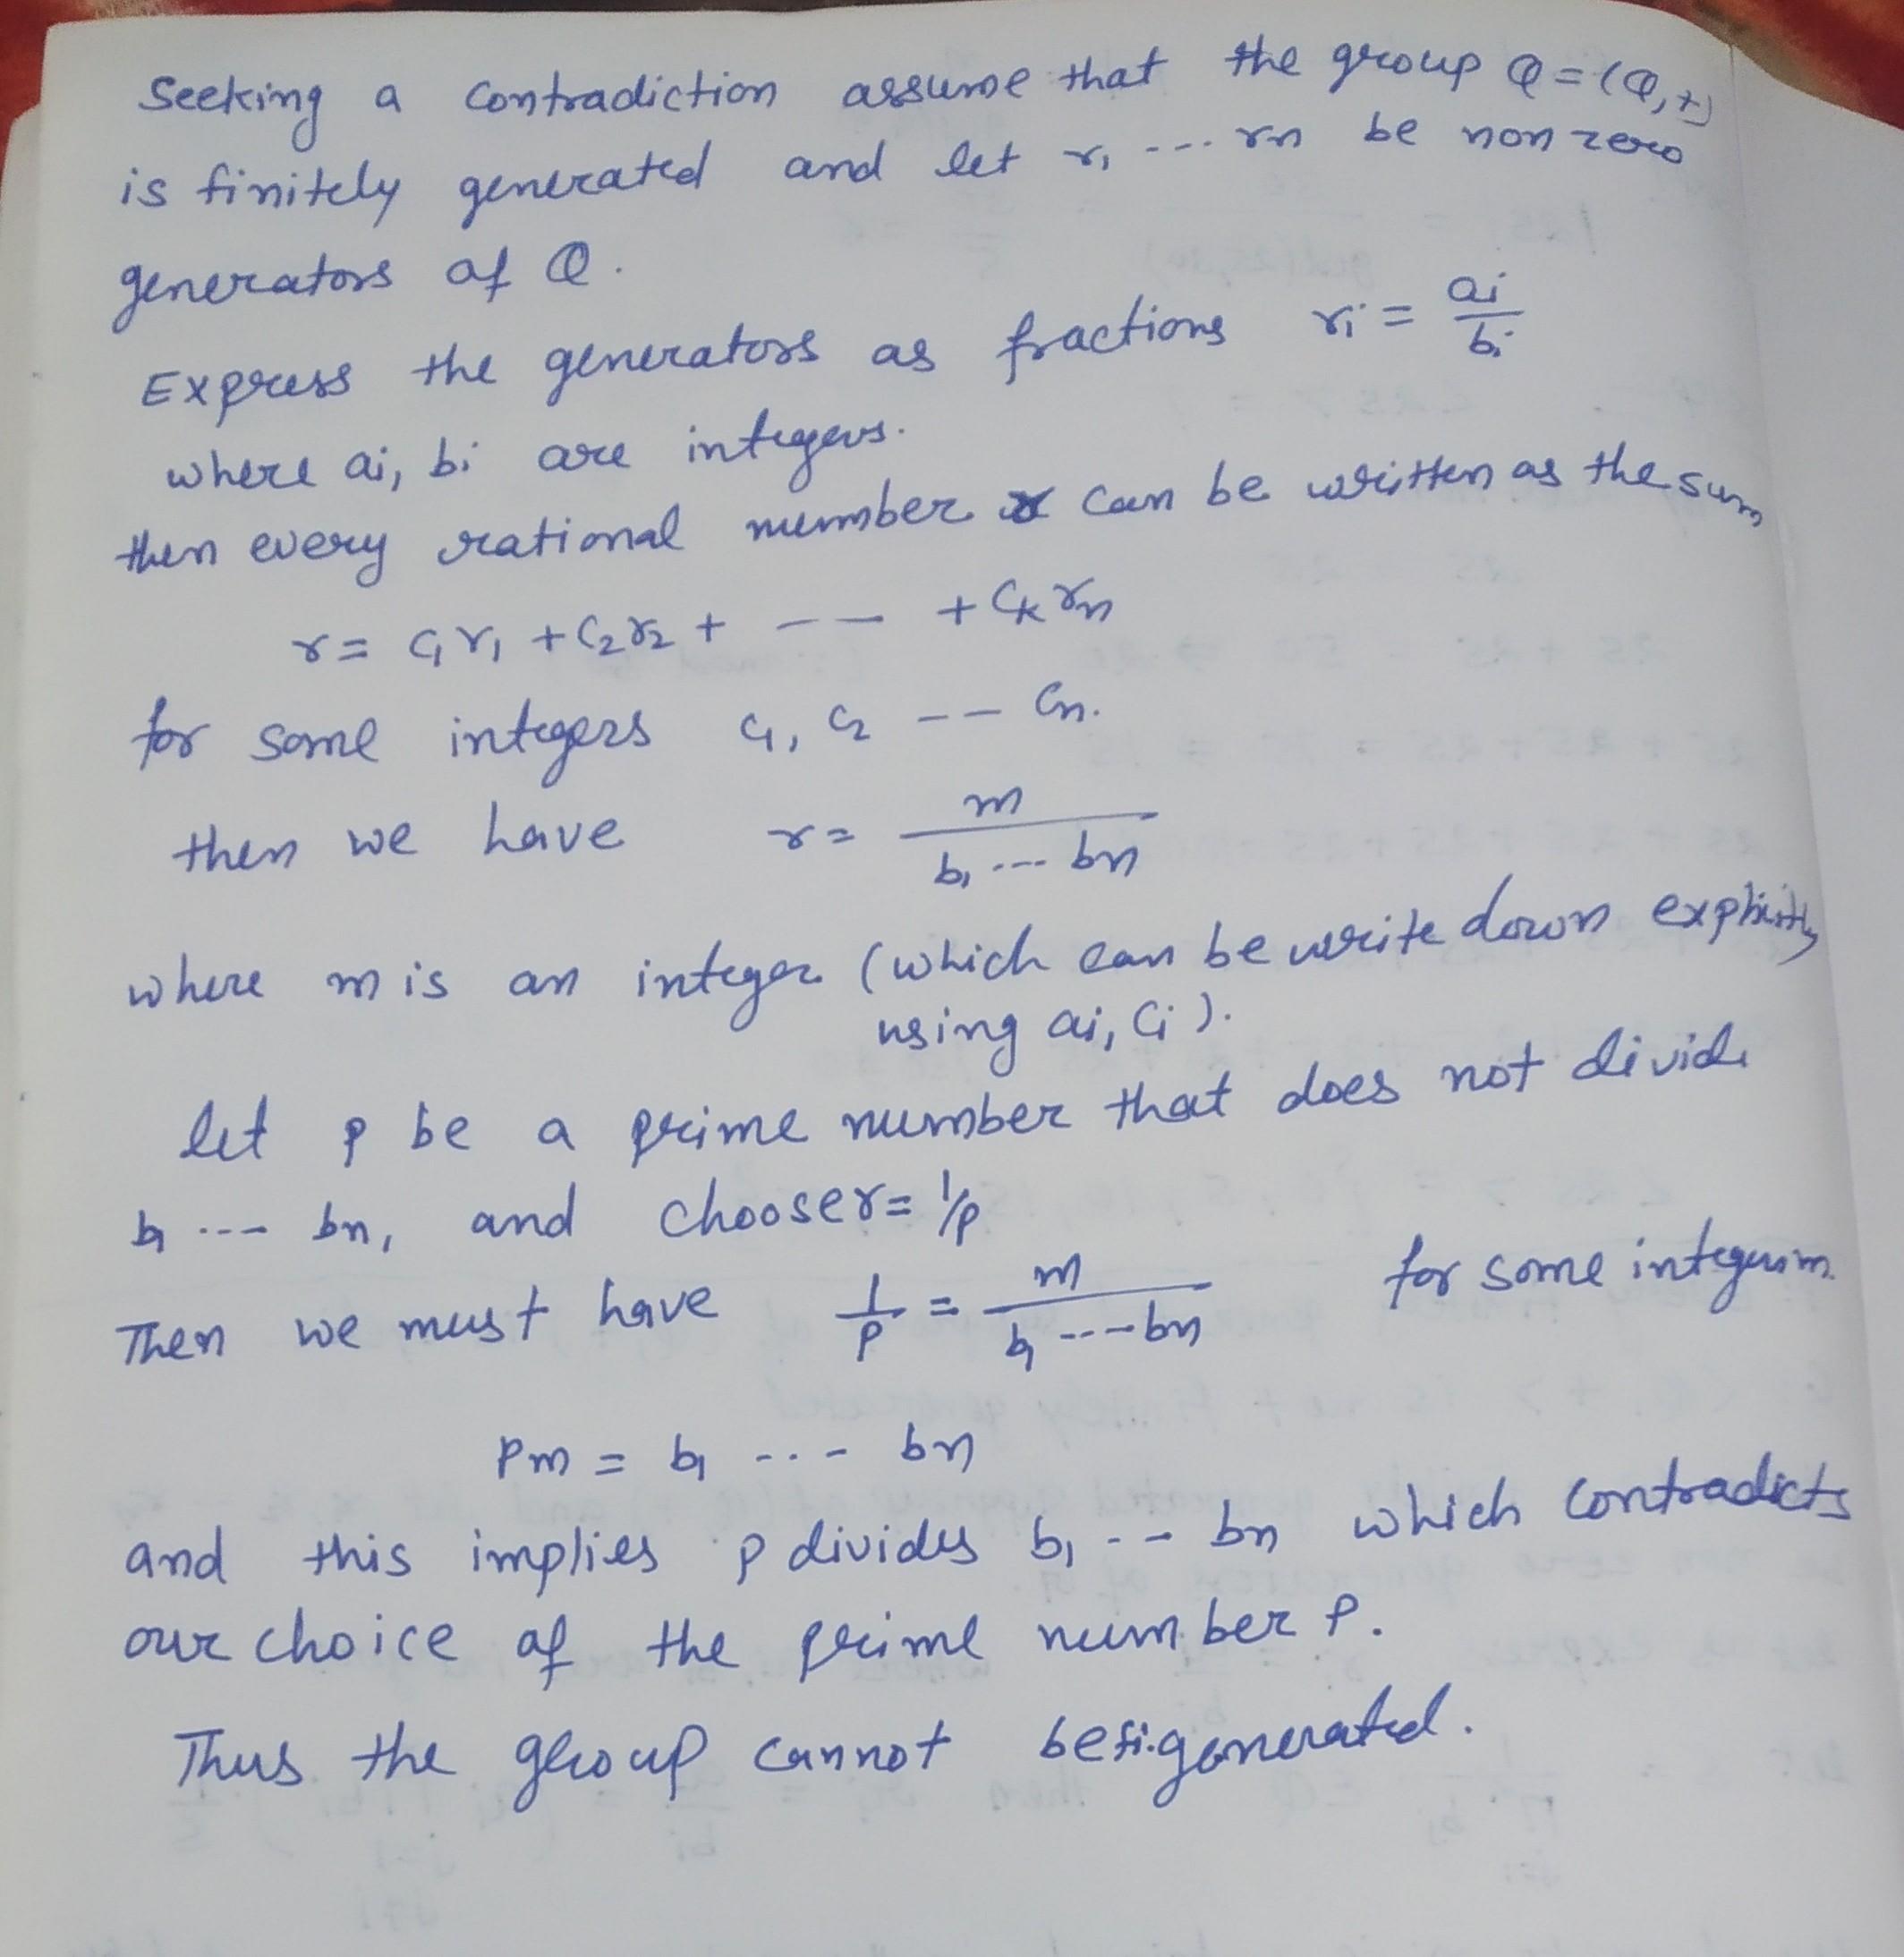 Seeking a contradiction assume that the group Q = (Q, +)
is finitely generated and let r1 --- rn be non zero
generators of Q.
Express the generators as fractions ri = ai/bi
where ai, bi are integers.
then every rational number r can be written as the sum
r = c1 r1 + c2 r2 + -- -- + ck rn
for some integers c1, c2 -- cn.
then we have r = m/(b1 --- bn)
where m is an integer (which can be write down explicitly
using ai, ci).
let p be a prime number that does not divide
b1 --- bn, and choose r = 1/p
Then we must have 1/p = m/(b1 --- bn) for some integer m.
pm = b1 --- bn
and this implies p divides b1 -- bn which contradicts
our choice of the prime number p.
Thus the group cannot be fi. generated.